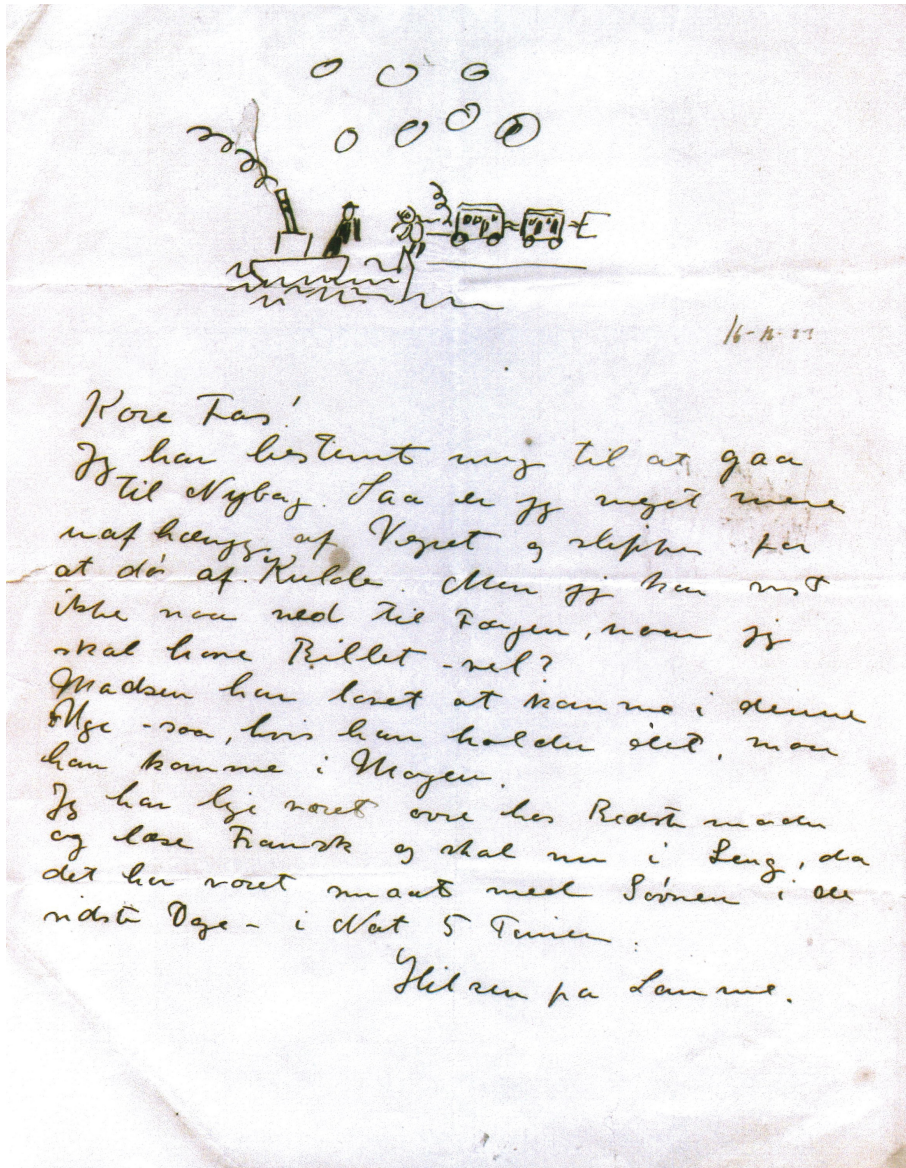 Kære Far!
Jeg har bestemt mig til at gaa
til Nyborg. Saa er jeg meget mere
uafhængig af Vejret og slipper for
at dø af Kulde. Men jeg kan vist
ikke naa ned til Færgen, naar jeg
skal have Billet - vel?
Madsen har lovet at komme i denne
Uge - saa, hvis han holder det, maa
han komme i Morgen.
Jeg har lige været ovre hos
og læse Fransk og skal nu i Seng, da
det har været smaat med Søvnen i de
sidste Dage - i Nat 5 Timer.
Hilsen fra Lamme.